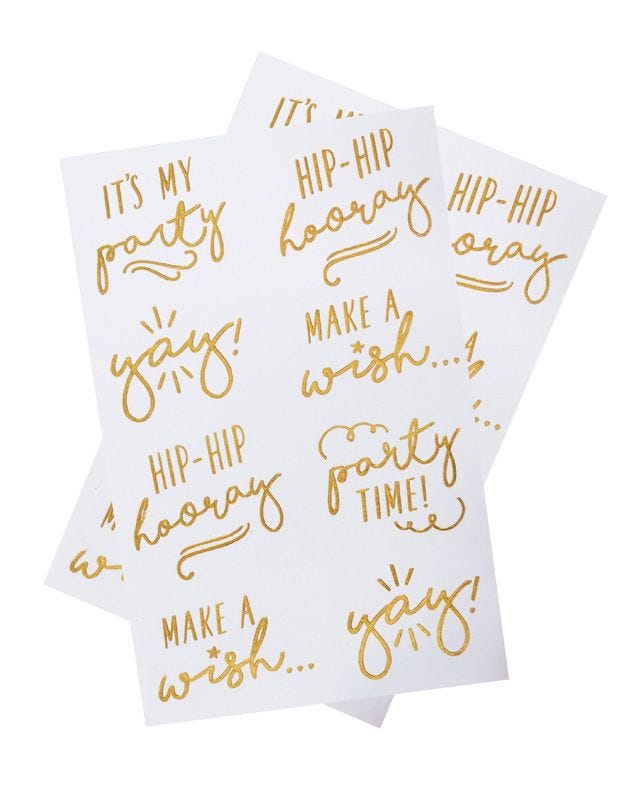 IT'S MY
party
HIP-HIP
hooray
yay!
MAKE A
wish...
HIP-HIP
hooray
party
TIME!
MAKE A
wish...
yay!
IT'S
HIP-HIP
oray